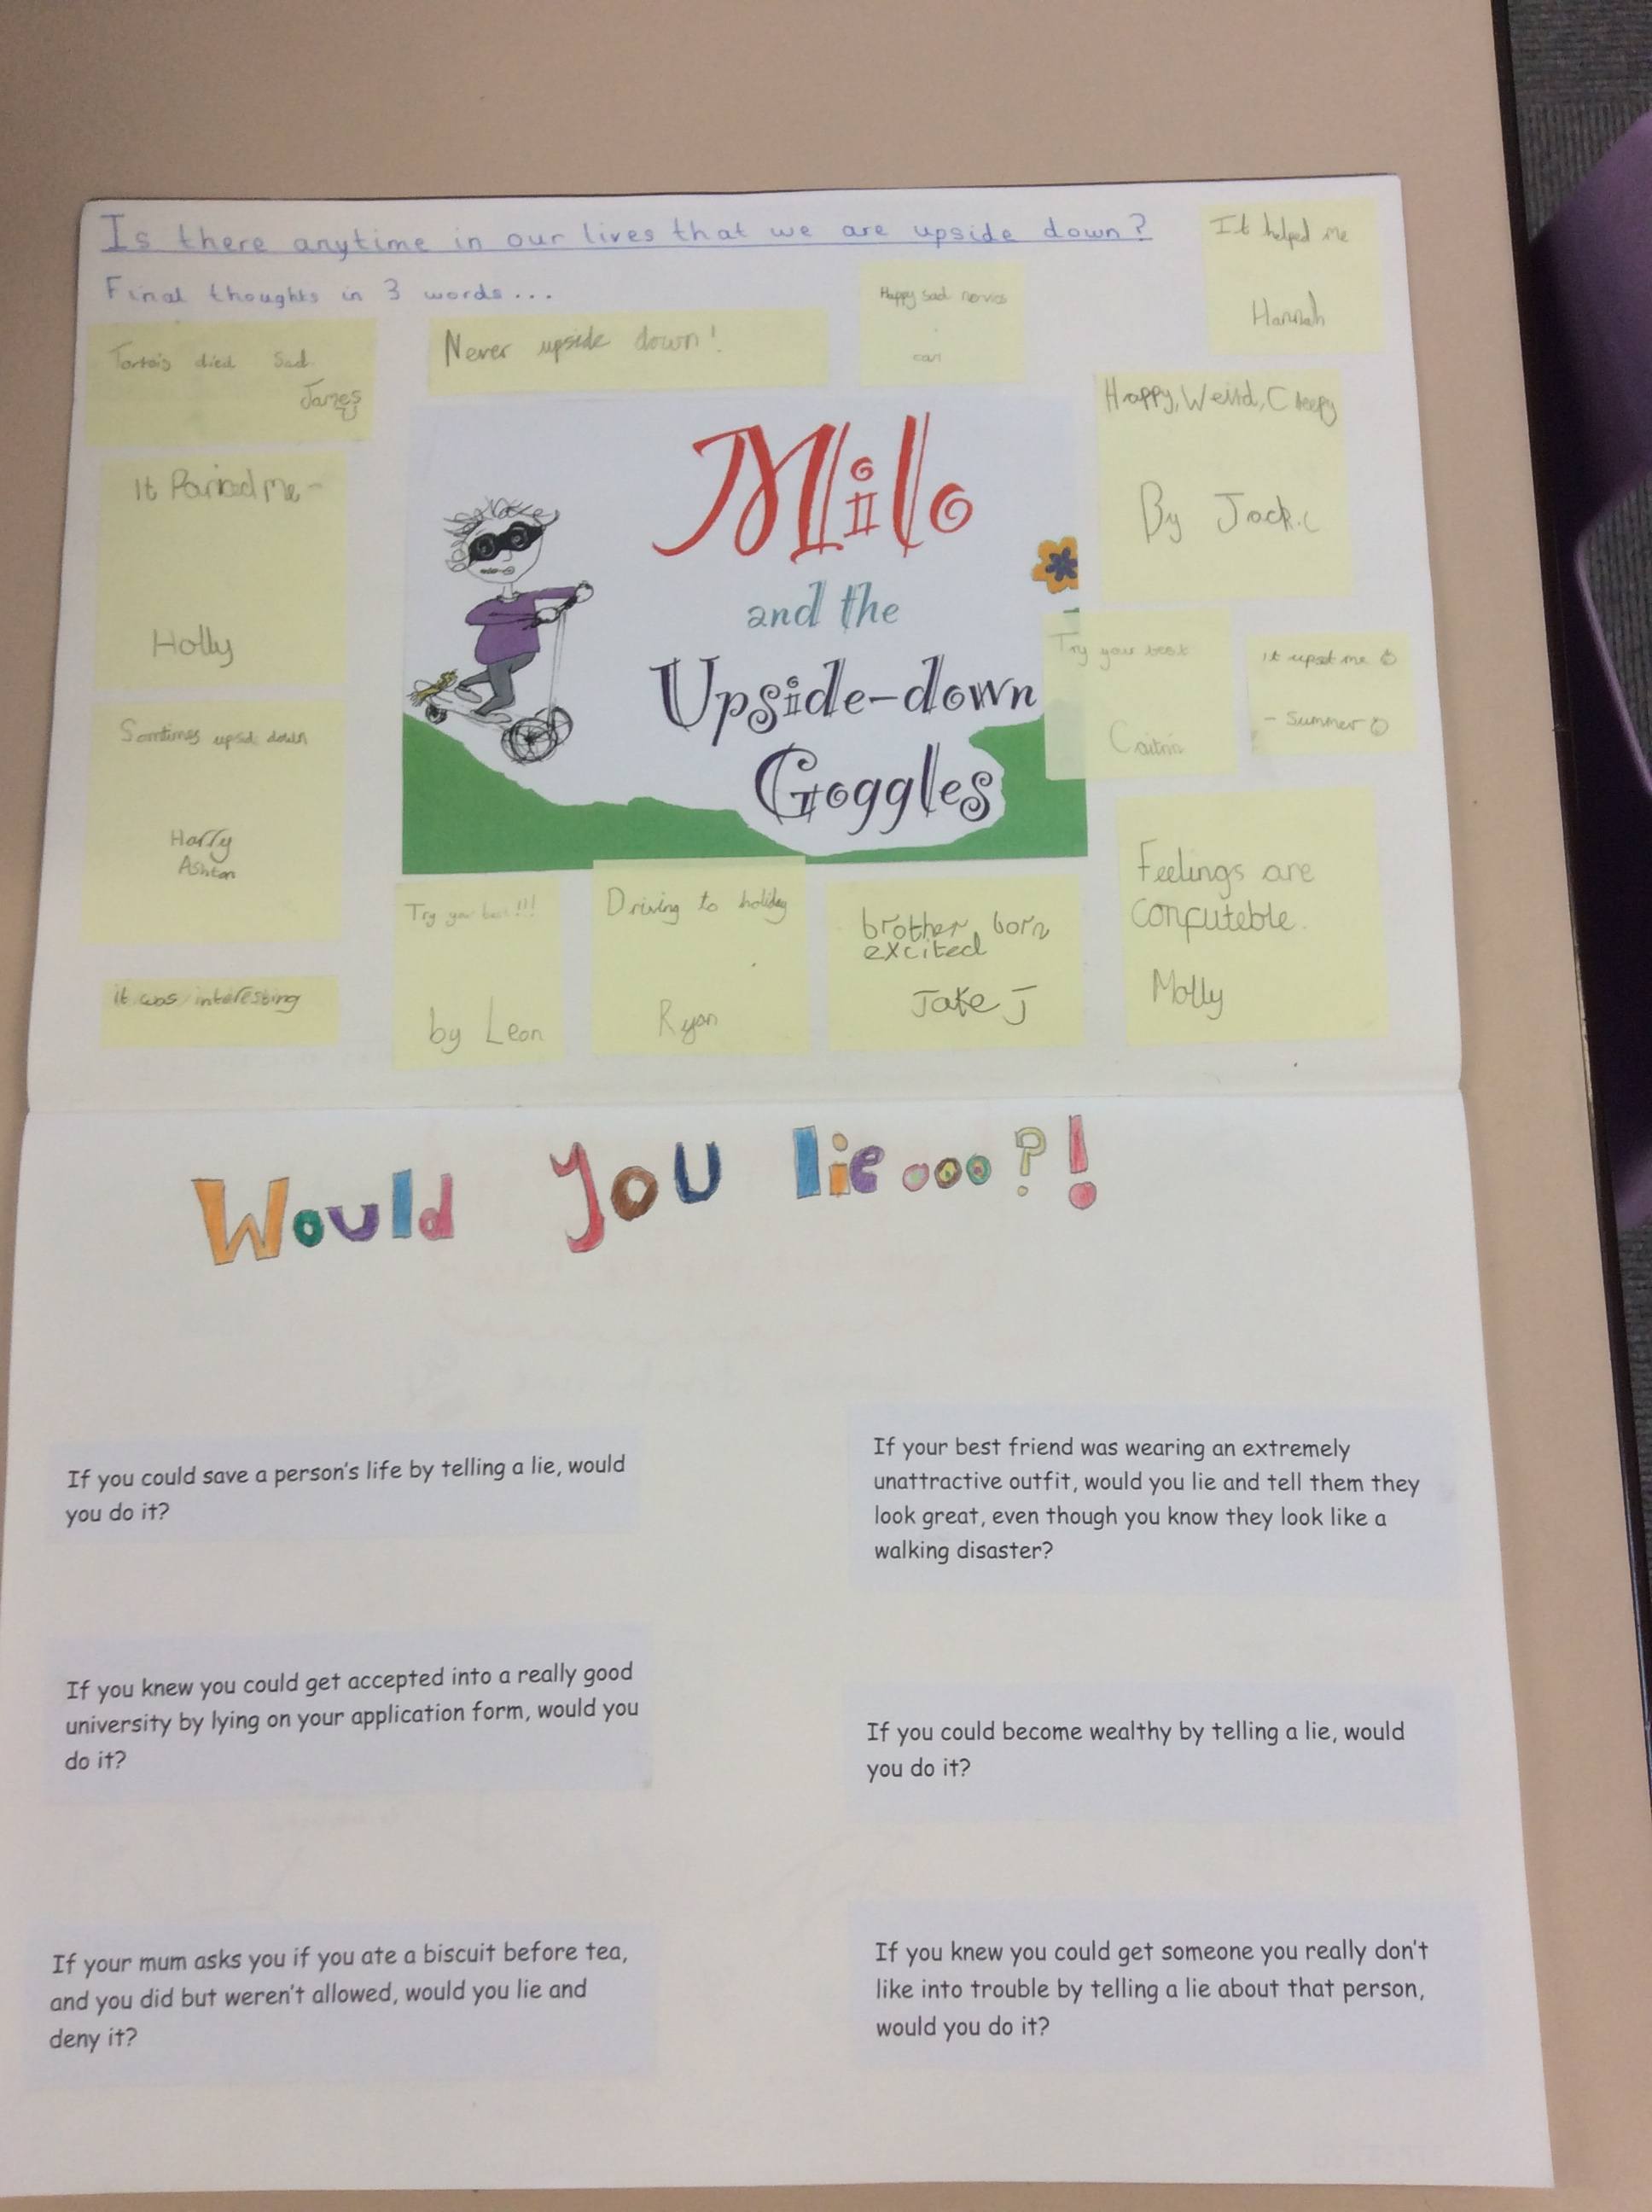 Is there anytime in our lives that we are upside down?
Final thoughts in 3 words...
It helped me
Hannah
Happy sad
Never upside down!
Tortois died Sad
James
It me -
Holly
Somtimes upside down
Harry
Ashton
it was interesting
Milo
and the
Upside-down
Goggles
Happy, Weird, Creepy
By Jack.C
Try your best
Caitria
it upset me
- Summer
Try your best!!!
by Leon
Driving to holiday
Ryan
brother born
excited
Jake J
Feelings are
confuteble.
Molly
Would you lie...?!
If you could save a person's life by telling a lie, would
you do it?
If your best friend was wearing an extremely
unattractive outfit, would you lie and tell them they
look great, even though you know they look like a
walking disaster?
If you knew you could get accepted into a really good
university by lying on your application form, would you
do it?
If you could become wealthy by telling a lie, would
you do it?
If your mum asks you if you ate a biscuit before tea,
and you did but weren't allowed, would you lie and
deny it?
If you knew you could get someone you really don't
like into trouble by telling a lie about that person,
would you do it?